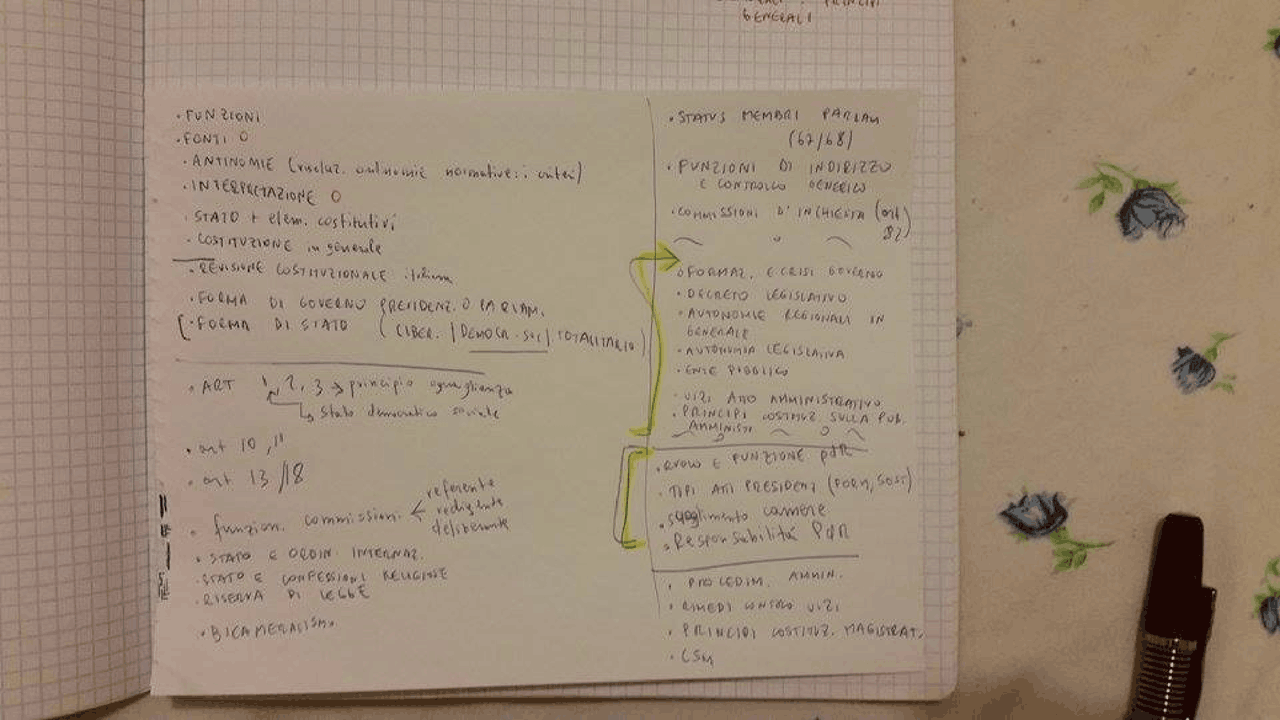 PRINCIPI
GENERALI
• FUNZIONI
• FONTI O
• ANTINOMIE (risoluz. antinomie normative: i criteri)
• INTERPRETAZIONE O
• STATO + elem. costitutivi
• COSTITUZIONE in generale
• REVISIONE COSTITUZIONALE italiana
• FORMA DI GOVERNO PRESIDENZ. O PARLAM.
[ • FORMA DI STATO (LIBER. | DEMOCR. SOC | TOTALITARIO)
• ART 1, 2, 3 → principio uguaglianza
↳ Stato democratico sociale
• art 10, 11
• art 13/18
• funzioni commissioni
referente
redigente
deliberante
• STATO E ORDIN. INTERNAZ.
• STATO E CONFESSIONI RELIGIOSE
• RISERVA DI LEGGE
• BICAMERALISMO
• STATUS MEMBRI PARLAM
(67/68)
• FUNZIONI DI INDIRIZZO
E CONTROLLO GENERICO
• COMMISSIONI D'INCHIESTA (art
82)
• FORMAZ. E CRISI GOVERNO
• DECRETO LEGISLATIVO
• AUTONOMIE REGIONALI IN
GENERALE
• AUTONOMIA LEGISLATIVA
• ENTE PUBBLICO
• VIZI ATTO AMMINISTRATIVO
• PRINCIPI COSTITUZ. SULLA PUB.
AMMINIST
• RUOLO E FUNZIONE PdR
• TIPI ATTI PRESIDENZ (FORM, SOST)
• scioglimento camere
• Responsabilità PdR
• PROCEDIM. AMMIN.
• RIMEDI CONTRO VIZI
• PRINCIPI COSTITUZ. MAGISTRAT.
• CSM